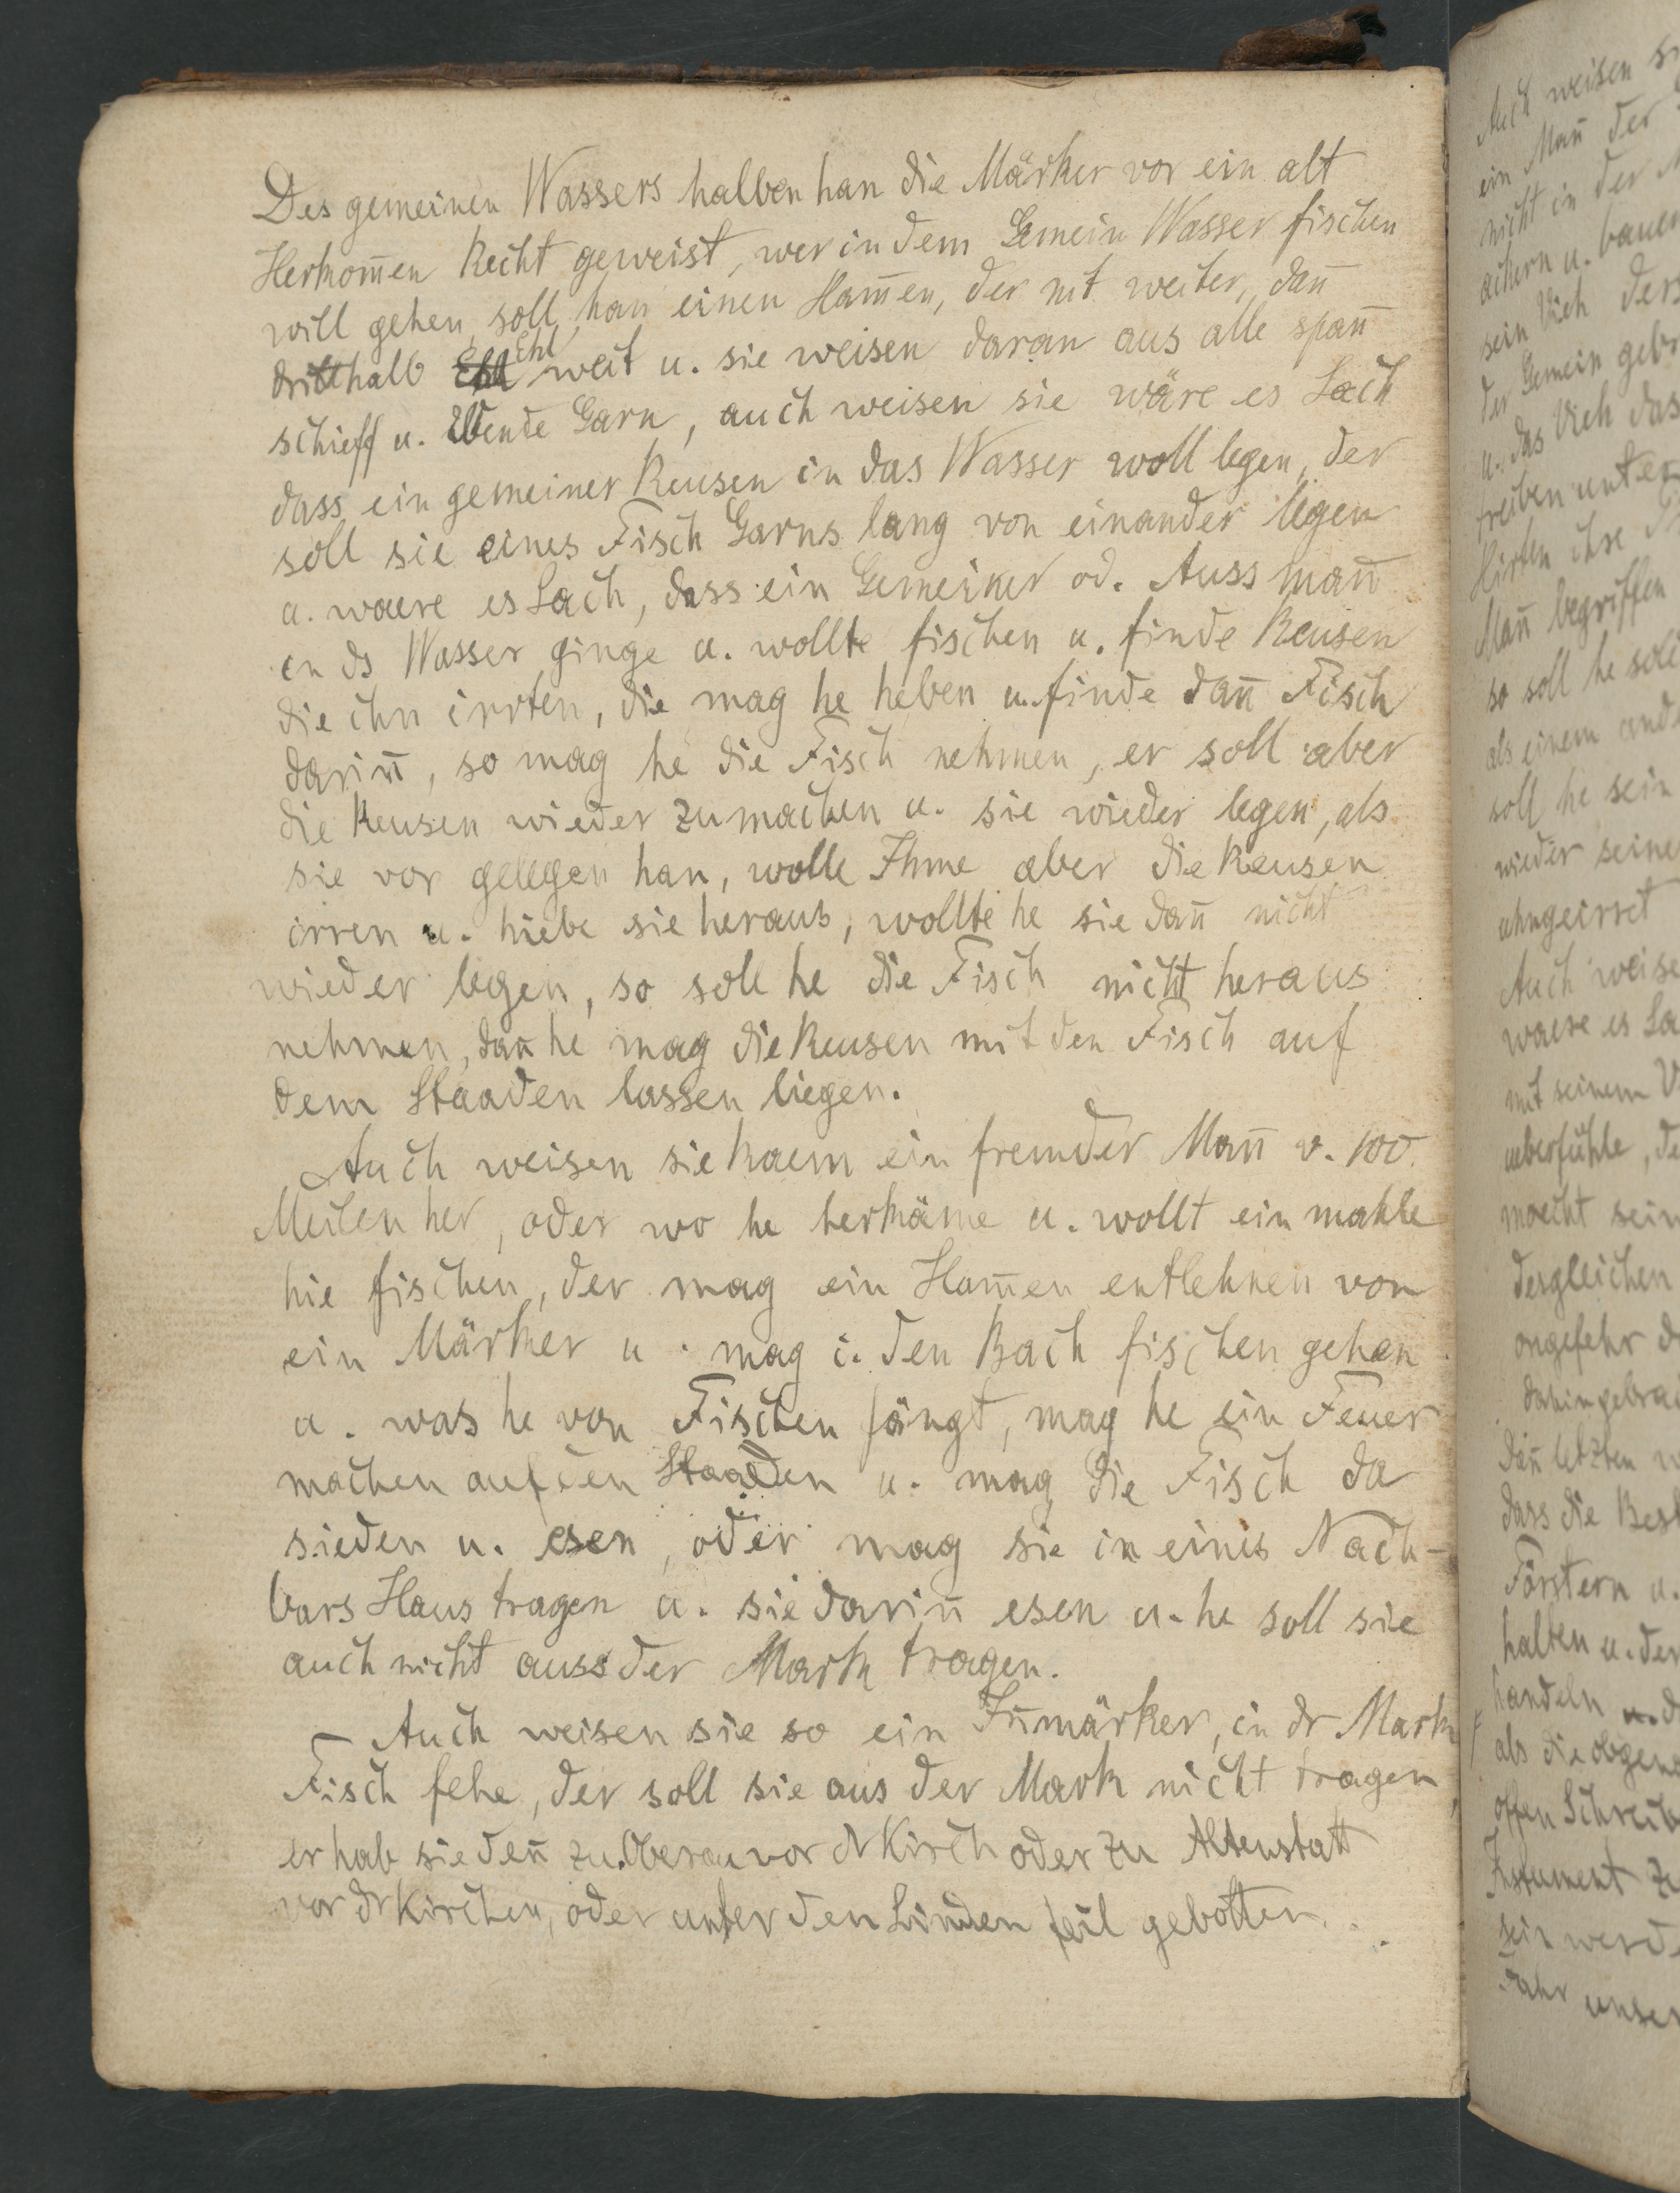 Des gemeinen Wassers halben han die Märker vor ein alt
Herkom̄en Recht geweist, wer in dem Gemein Wasser fischen
will gehen, soll han einen Ham̄en, der nit weiter, dan̄
dritthalb Ehl weit u. sie weisen daran aus alle span̄
schieff u. Garn, auch weisen sie wäre es Sach
dass ein gemeiner Reusen in das Wasser woll legen, der
soll sie eines Fisch Garns lang von einander legen
u. waere es Sach, dass ein Gemeiner od. Auss man̄
in ds Wasser ginge u. wollte fischen u. finde Reusen
die ihn irrten, die mag he heben u. finde dan̄ Fisch
darin̄, so mag he die Fisch nehmen, er soll aber
die Reusen wieder zumachen u. sie wieder legen, als
sie vor gelegen han, wolle Ihme aber die Reusen
irren u. hiebe sie heraus, wollte he sie dan̄ nicht
wieder legen, so soll he die Fisch nicht heraus
nehmen, dan̄ he mag die Reusen mit den Fisch auf
dem Staaden lassen liegen.
Auch weisen sie kaem ein fremder Man̄ v. 100.
Meilen her, oder wo he herkäme u. wollt ein mahle
hie fischen, der mag ein Ham̄en entlehnen von
ein Märker u. mag i. den Bach fischen gehen
u. was he von Fischen fängt, mag he ein Feuer
machen auf den Staaden u. mag die Fisch da
sieden u. esen, oder mag sie in eines Nach-
bars Haus tragen u. sie darin̄ esen u. he soll sie
auch nicht auss der Mark tragen.
Auch weisen sie so ein In̄märker, in dr Mark
Fisch fehe, der soll sie aus der Mark nicht tragen,
er hab sie den̄ zu Oberau vor dr Kirch oder zu Altenstatt
vor dr Kirchen, oder unter den Linden feil gebotten.
Auch weisen
ein Man̄ der
nicht in der
ackern u. bauen
sein Vieh
der Gemein
u. das Vieh das
treiben unter
Hirten ihre
Man̄ begriffen
so soll he
als einem
soll he sein
wieder seine
ohngeirret
Auch weise
waere es
mit seinem
ueberfühle,
moecht sein
desgleichen
ongefehr
dan̄ letzten
dass die
Förstern u.
halten u. der
handeln
als die
offen
Instument
sein
Jahr unser